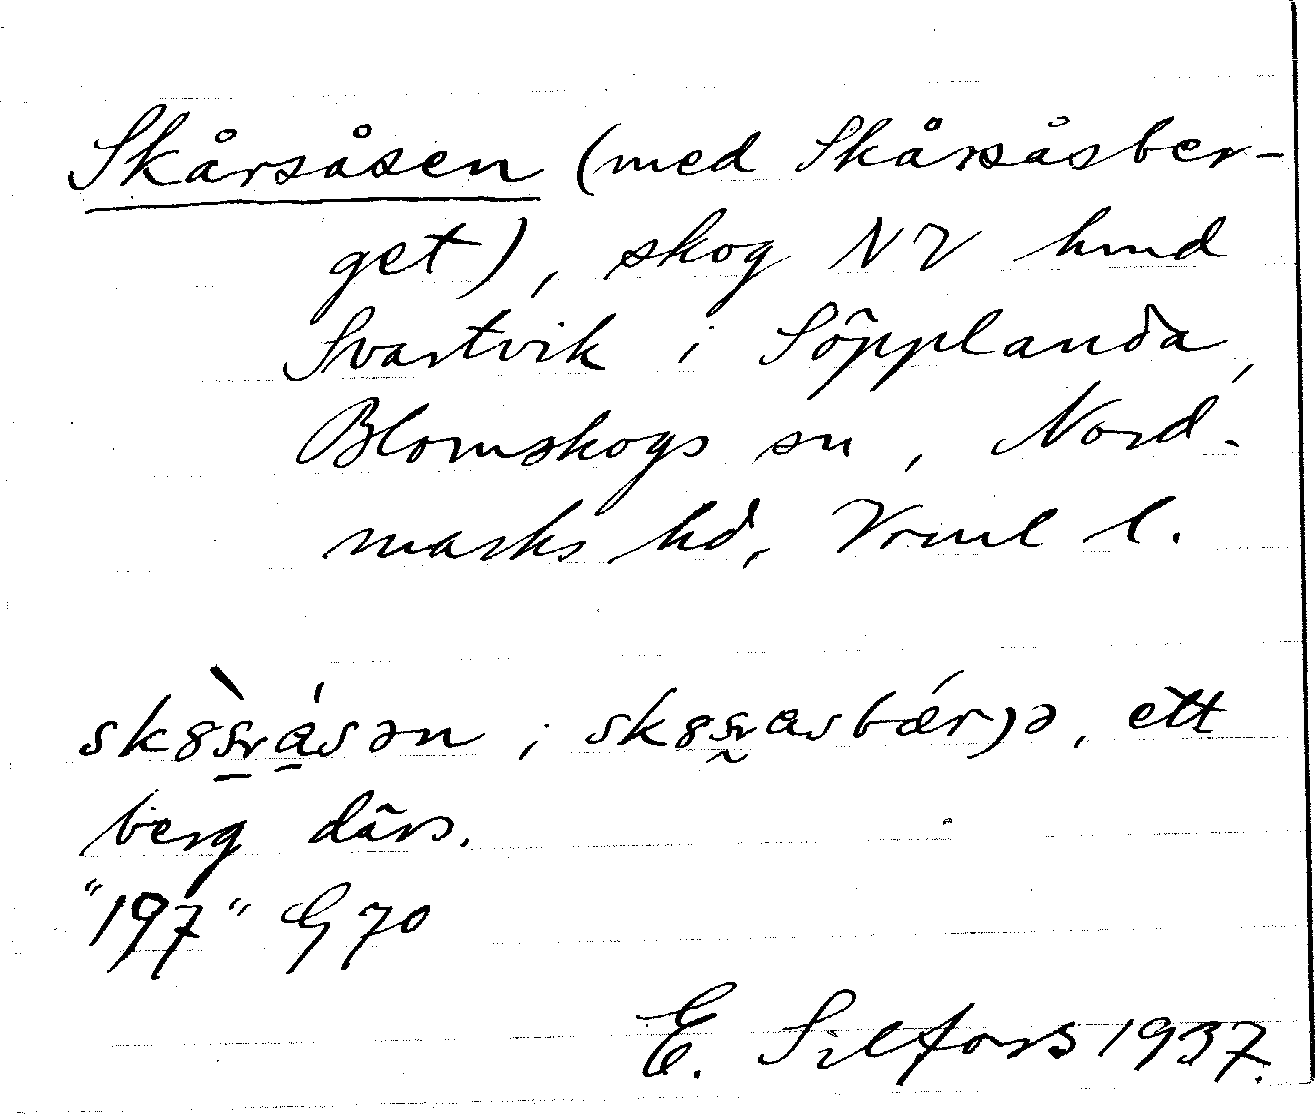 Skårsåsen (med Skårsåsber-
get), skog NV hmd
Svartvik i Söpplanda,
Blomskogs sn, Nord-
marks hd, Vrml l.
berg därs.
"197" G 70
E. Silfors 1937.